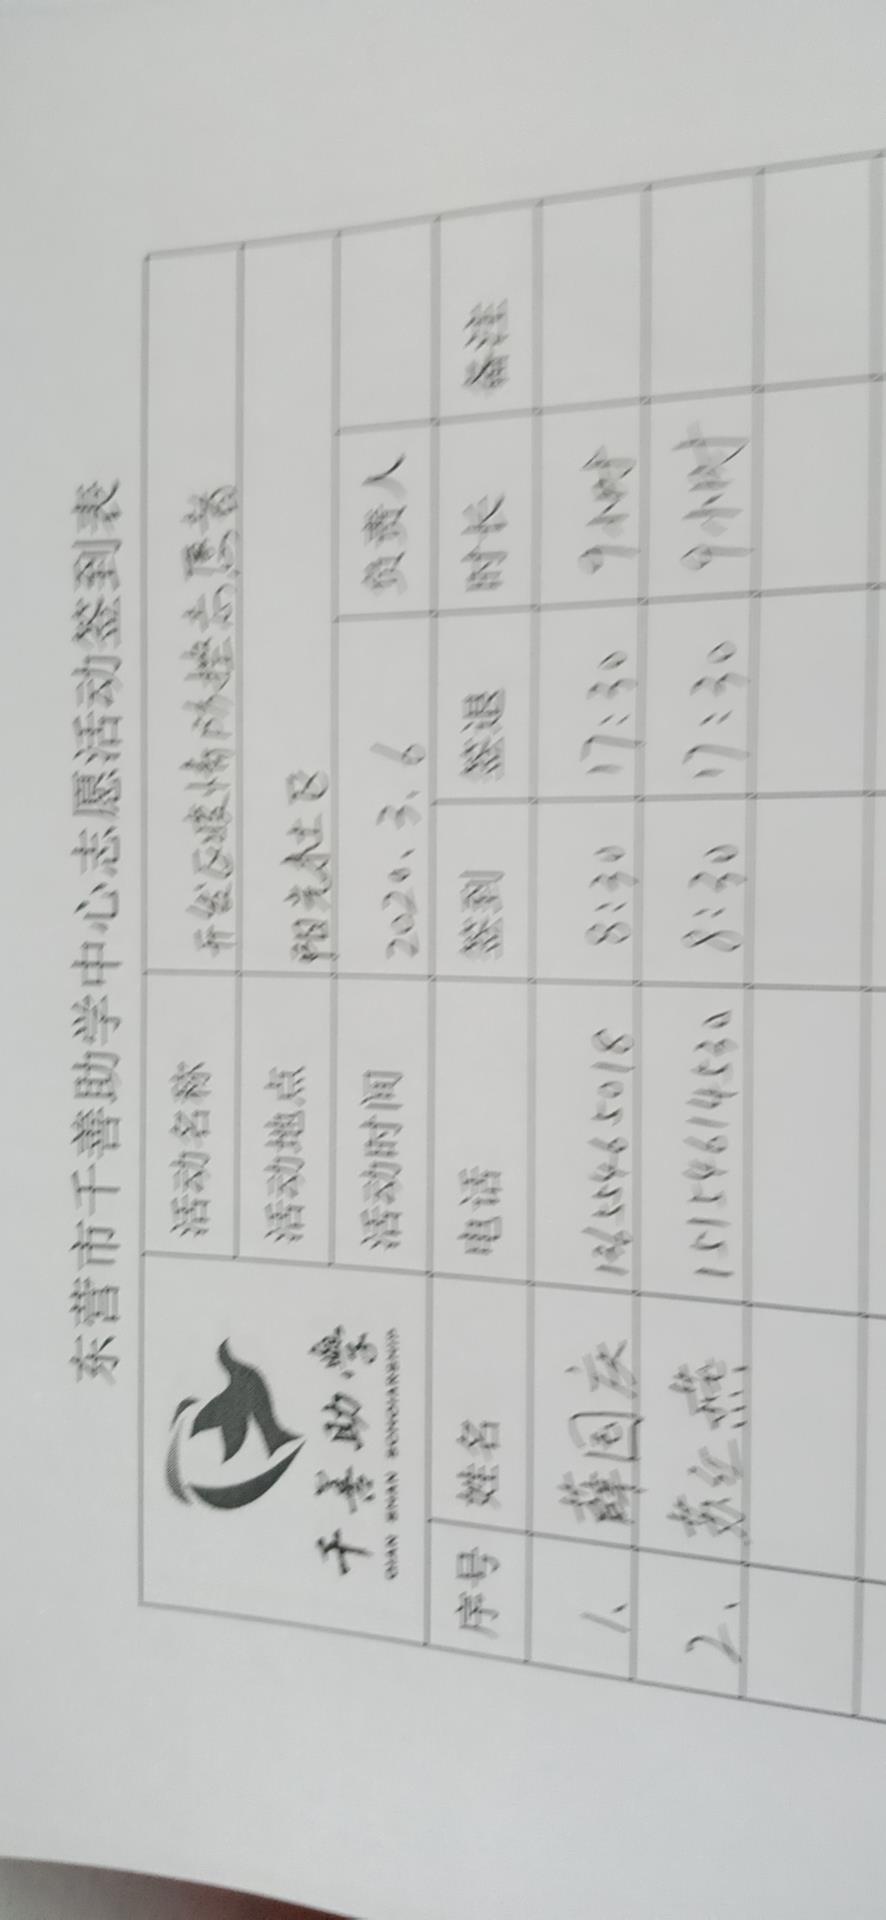 东营市千善助学中心志愿活动签到表
千善助学
QIAN SHAN
活动名称 开发区疫情防控志愿者
活动地点 阳光社区
活动时间 2020.3.6 负责人
序号 姓名 电话 签到 签退 时长 备注
1、 薛国庆 8:30 17:30 9小时
2、 苏红燕 15154614530 8:30 17:30 9小时